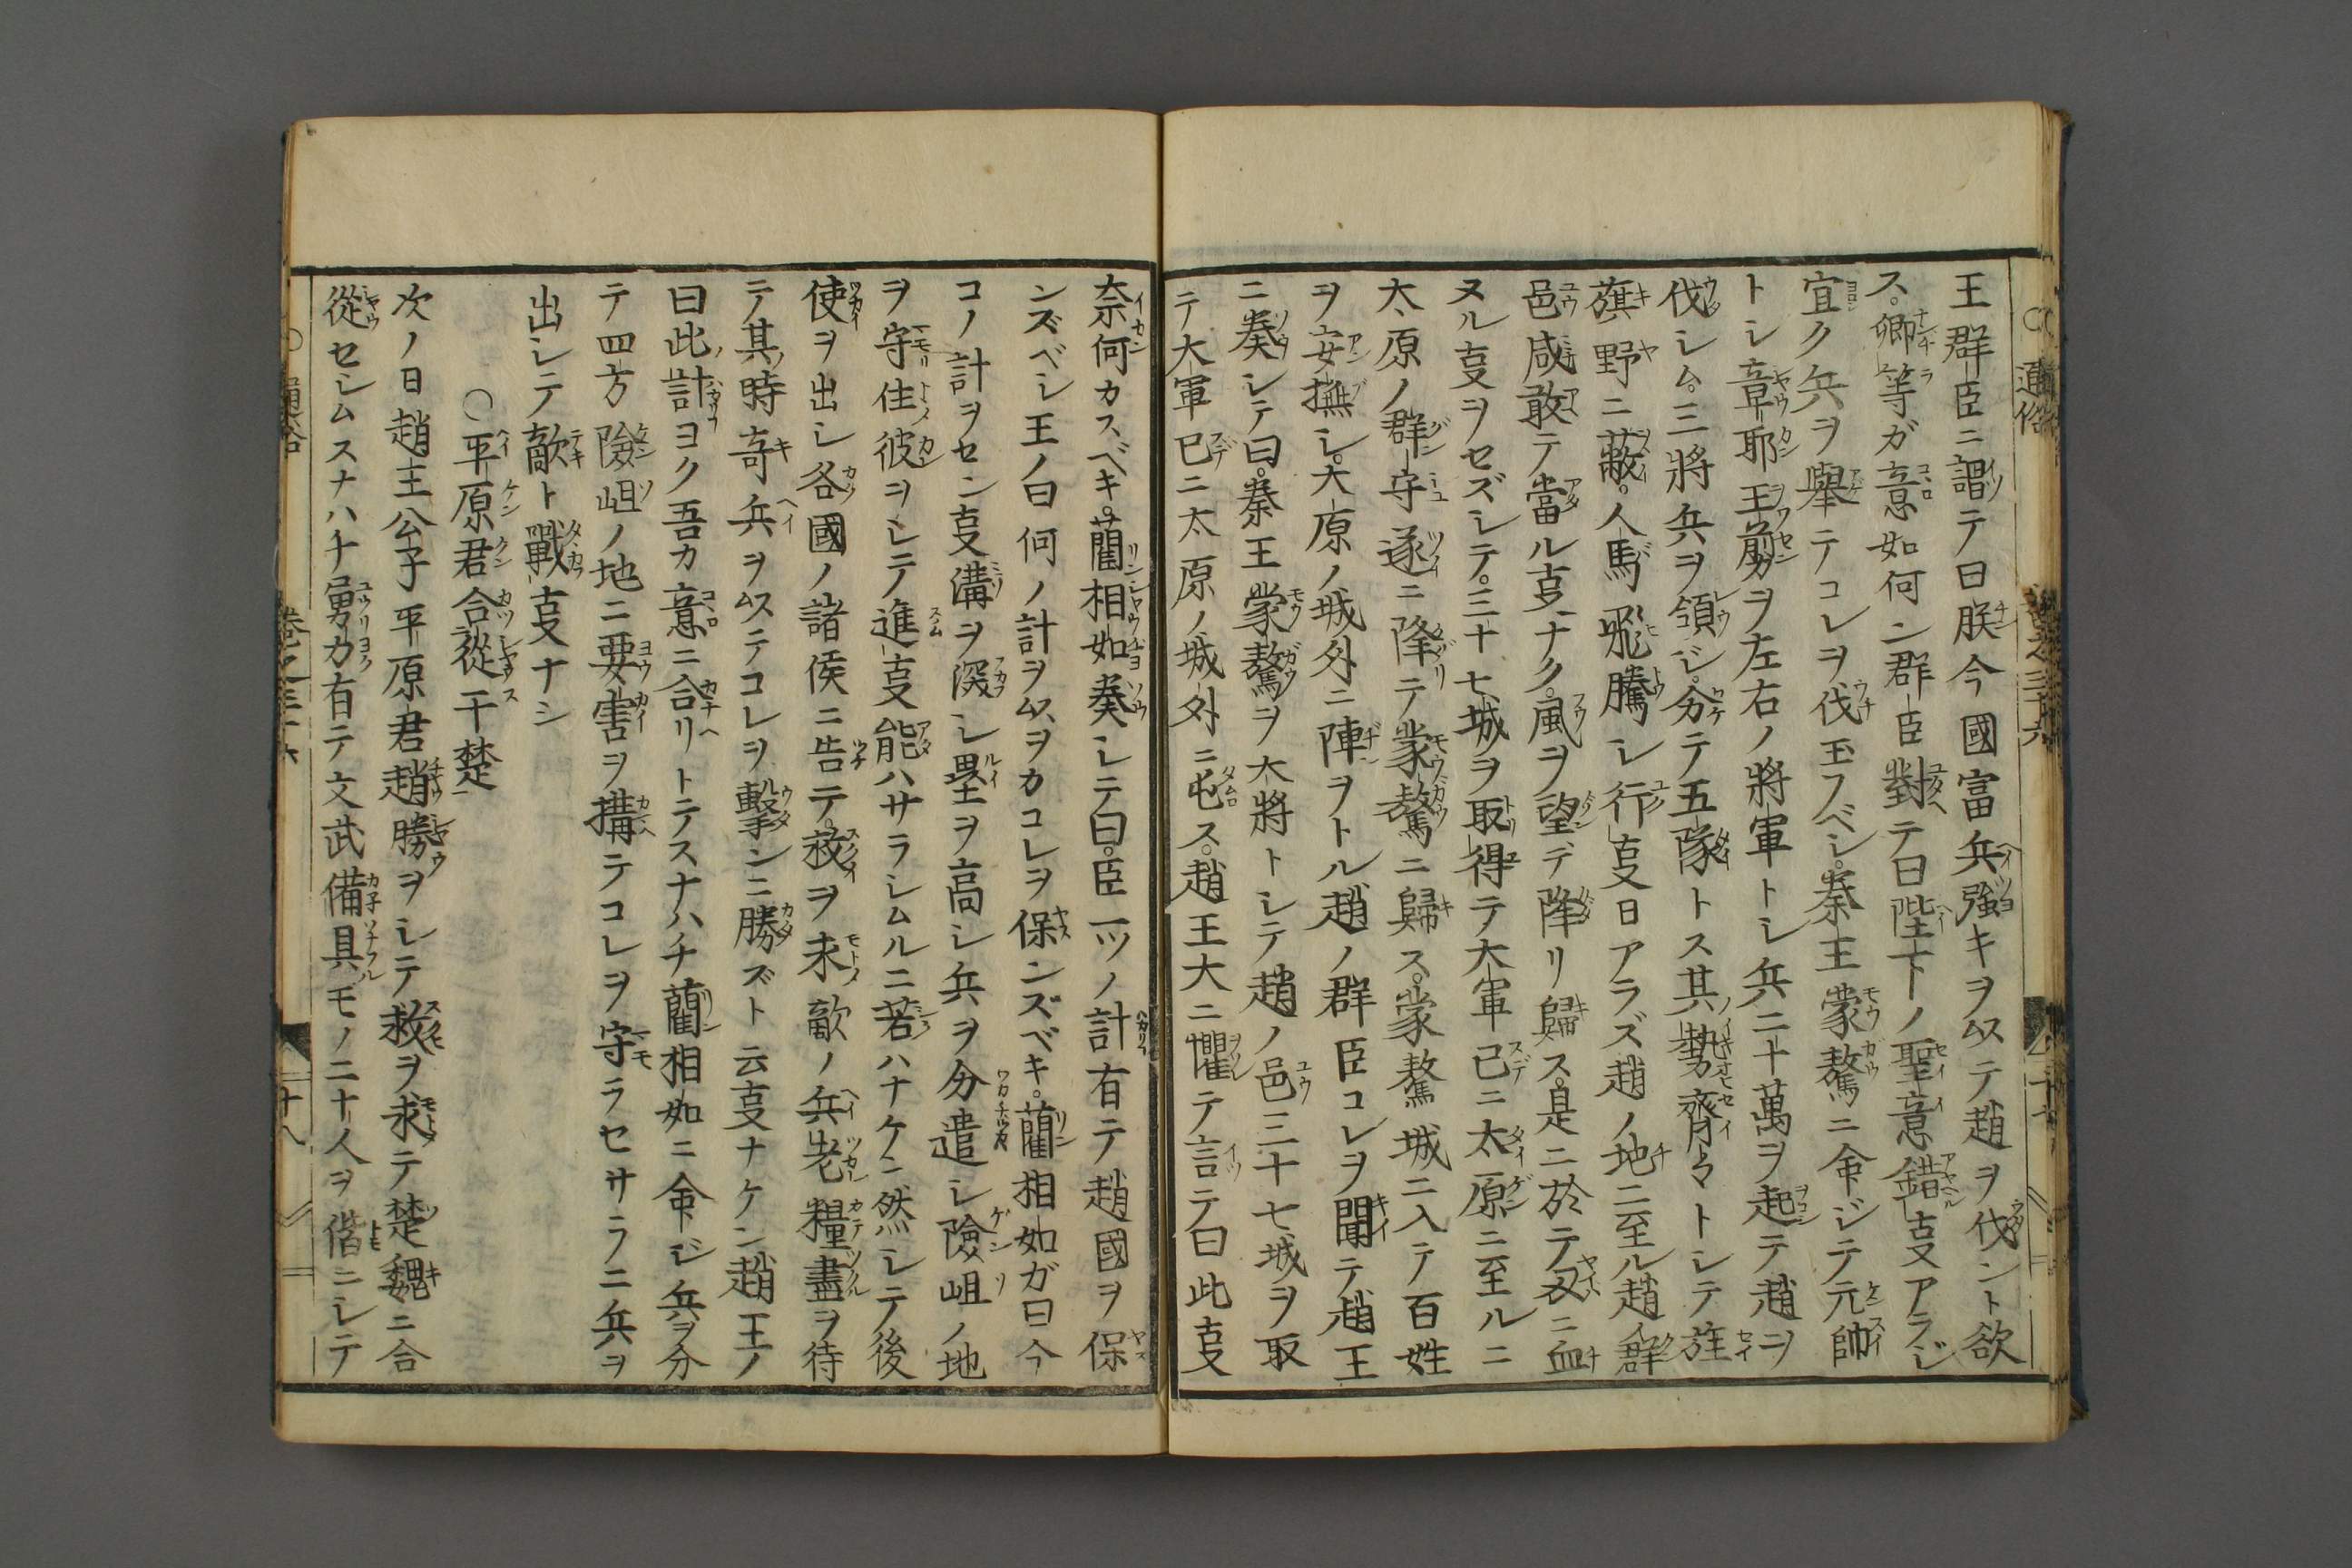 王群臣ニ謂テ曰朕今國冨兵強キヲ以テ趙ヲ伐ント欲
ス。卿等ガ意如何ン群臣對テ曰陛下ノ聖意錯ル㕝アラジ
宜ク兵ヲ擧テコレヲ伐玉フベシ。秦王蒙驁ニ命ジテ元帥
トシ章耶王翦ヲ左右ノ將軍トシ兵二十萬ヲ起テ趙ヲ
伐シム。三將兵ヲ領ジ。分テ五隊トス其勢齊々トシテ旌
旗野ニ蔽。人馬飛騰シ行㕝日アラズ趙ノ地ニ至ル趙ノ群
邑咸敢テ當ル㕝ナク。風ヲ望デ降リ歸ス。是ニ於テ刄ニ血
ヌル㕝ヲセズシテ。三十七城ヲ取得テ大軍已ニ太原ニ至ルニ
太原ノ群守遂ニ降テ蒙驁ニ歸ス。蒙驁城ニ入テ百姓
ヲ安撫シ。大原ノ城外ニ陣ヲトル趙ノ群臣コレヲ聞テ趙王
ニ奏シテ曰。秦王蒙驁ヲ大將トシテ趙ノ邑三十七城ヲ取
テ大軍已ニ太原ノ城外ニ屯ス。趙王大ニ懼テ言テ曰此㕝
奈何カスベキ。藺相如奏シテ曰。臣一ツノ計有テ趙國ヲ保
ンズベシ王ノ曰何ノ計ヲ以ヲカコレヲ保ンズベキ。藺相如ガ曰今
コノ計ヲセン㕝溝ヲ深シ壘ヲ高シ兵ヲ分遣シ險岨ノ地
ヲ守住彼ヲシテ進㕝能ハサラシムルニ若ハナケン然シテ後
使ヲ出シ各國ノ諸侯ニ告テ。救ヲ求敵ノ兵老糧盡ヲ待
テ其時竒兵ヲ以テコレヲ擊ンニ勝ズト云㕝ナケン趙王ノ
曰此計ヨク吾カ意ニ合リトテスナハチ藺相如ニ命ジ兵ヲ分
テ四方險岨ノ地ニ要害ヲ搆テコレヲ守ラセサラニ兵ヲ
出シテ敵ト戰㕝ナシ
○平原君合從干楚
次ノ日趙王公子平原君趙勝ヲシテ救ヲ求テ楚魏ニ合
從セシムスナハチ勇力有テ文武備具モノ二十人ヲ偕ニシテ